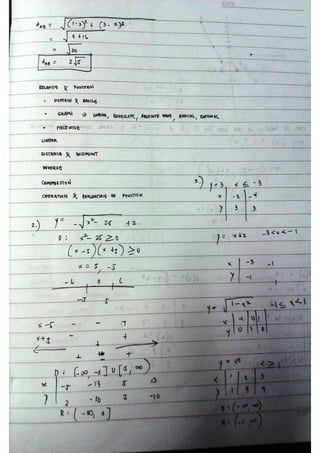 d_AB = √(1-3)² + (3-
= √4+16
= √20
d_AB = 2√5
RELATION & FUNCTION
• DOMAIN & RANGE
• GRAPH → LINEAR, QUADRATIC, ABSOLUTE VALUE, RADICAL, RATIONAL
• PIECEWISE
LINEAR
DISTANCE & MIDPOINT
INVERSE
COMPOSITION
OPERATION & EVALUATION OF FUNCTION
2.) y = -√x²- 25 +2
D: x²- 25 ≥ 0
(x-5)(x+5) ≥ 0
x = 5, -5
-6 0 6
-5 5
x-5 - - +
x+5 - + +
+ - +
D: [-∞, -5] U [5, ∞)
x -5 -13 5 13
y 2 -10 2 -10
R: (-∞, 2]
3.) y=3, x ≤ -3
x -3 -4
y 3 3
y = x+2 -3<x<-1
x -3 -1
y -1 1
y = √1-x² -1≤x<1
x -1 0 1
y 0 1 0
y = x² x ≥ 1
x 1 2 3
y 1 4 9
D: (-∞, ∞)
R: (-1, ∞)